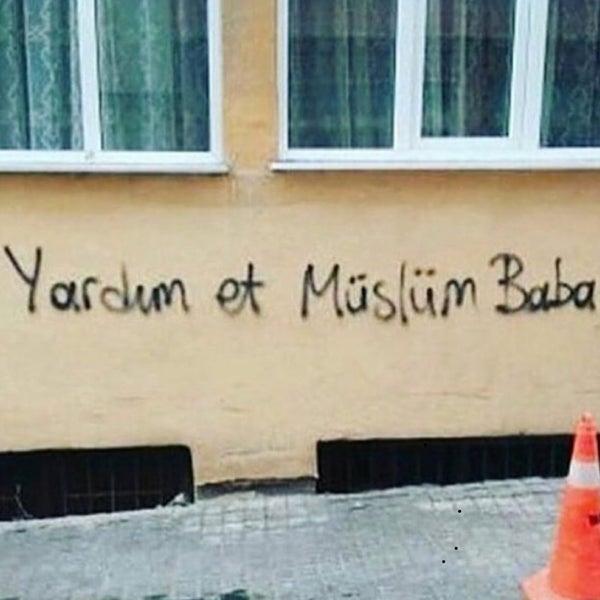 Yardım et Müslüm Baba